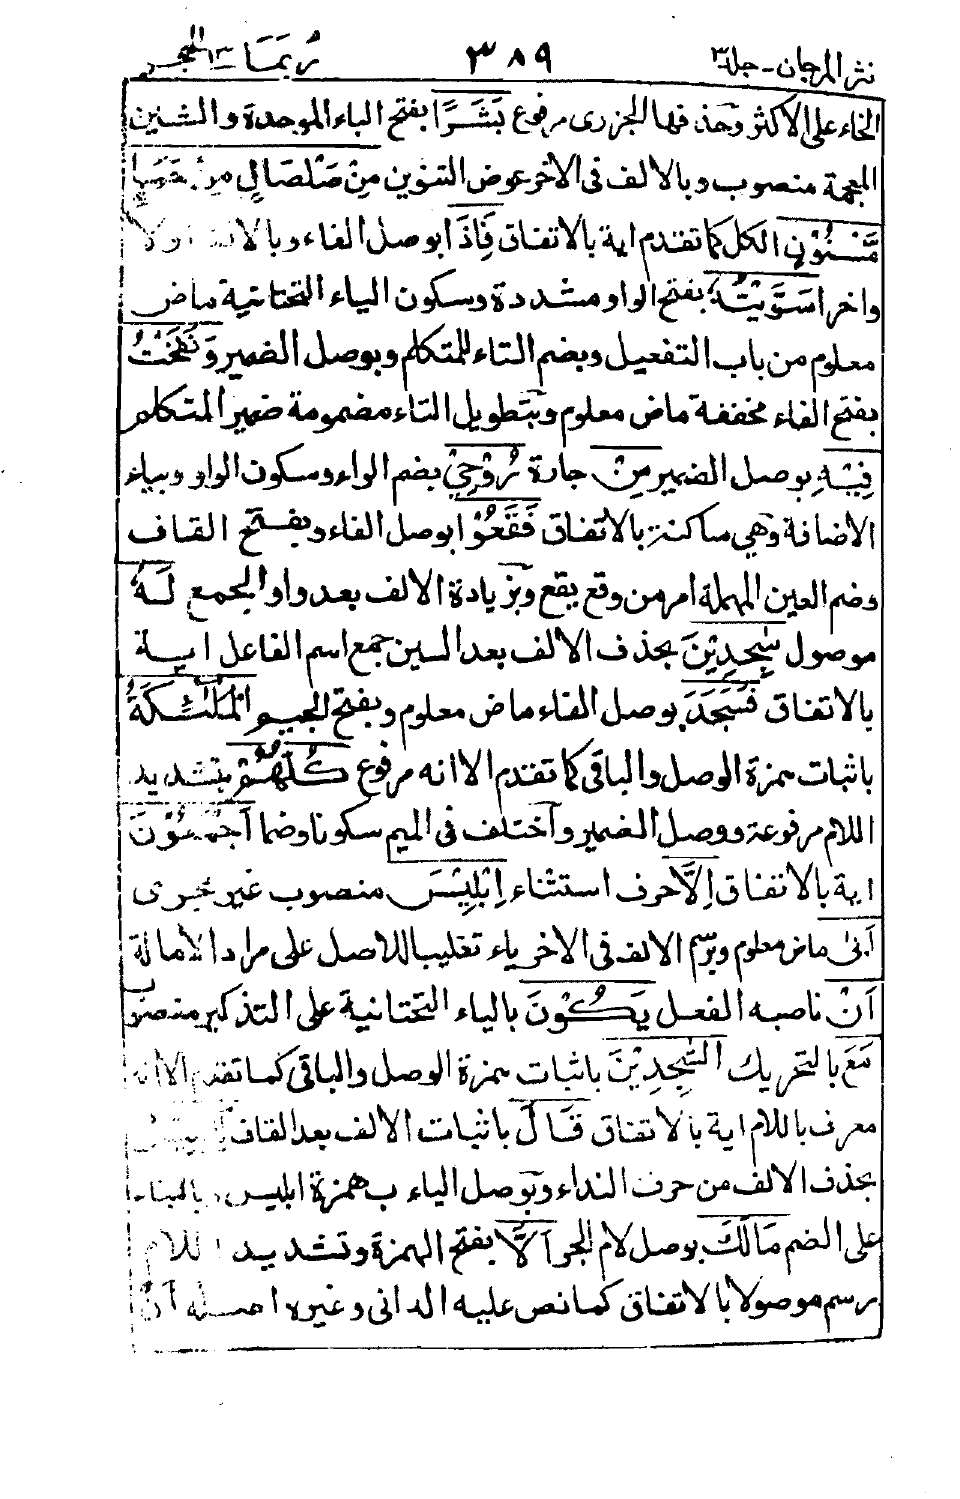 نثر المرجان - جلد ٣ ٣٨٩ رُبَمَا ١٣ الحجر
الخاء على الاكثر وحذفها الجزرى مرفوع بَشَرًا بفتح الباء الموحدة والشين
المعجمة منصوب وبالالف فى الآخر عوض التنوين مِنْ صَلْصَالٍ مِنْ حَمَإٍ
مَّسْنُوْنٍ الكل كما تقدم اية بالاتفاق فَاِذَا بوصل الفاء وبالالف اولا
واخرا سَوَّيْتُهُ بفتح الواو مشددة وسكون الياء التحتانية ماض
معلوم من باب التفعيل وبضم التاء للمتكلم وبوصل الضمير وَنَفَخْتُ
بفتح الفاء مخففة ماض معلوم وبتطويل التاء مضمومة ضمير المتكلم
فِيْهِ بوصل الضمير مِنْ جارة رُوْحِيْ بضم الراء وسكون الواو وبياء
الاضافة وهى ساكنة بالاتفاق فَقَعُوْا بوصل الفاء وبفتح القاف
وضم العين المهملة امر من وقع يقع وبزيادة الالف بعد واو الجمع لَهٗ
موصول سٰجِدِيْنَ بحذف الالف بعد السين جمع اسم الفاعل اية
بالاتفاق فَسَجَدَ بوصل الفاء ماض معلوم وبفتح الجيم الْمَلٰٓئِكَةُ
باثبات همزة الوصل والباقى كما تقدم الا انه مرفوع كُلُّهُمْ بتشديد
اللام مرفوعة ووصل الضمير واختلف فى الميم سكونا وضما اَجْمَعُوْنَ
اية بالاتفاق اِلَّا حرف استثناء اِبْلِيْسَ منصوب غير مجرى
اَبٰى ماض معلوم وبرسم الالف فى الآخر ياء تغليبا للاصل على مراد الامالة
اَنْ ناصبه الفعل يَكُوْنَ بالياء التحتانية على التذكير منصوب
مَعَ بالتحريك السّٰجِدِيْنَ باثبات همزة الوصل والباقى كما تقدم الا انه
معرف باللام اية بالاتفاق قَالَ باثبات الالف بعد القاف
بحذف الالف من حرف النداء وبوصل الياء ب همزة ابليس بالبناء
على الضم مَالَكَ بوصل لام الجر اَلَّا بفتح الهمزة وتشديد اللام
رسم موصولا بالاتفاق كما نص عليه الدانى وغيره اصله اَنْ